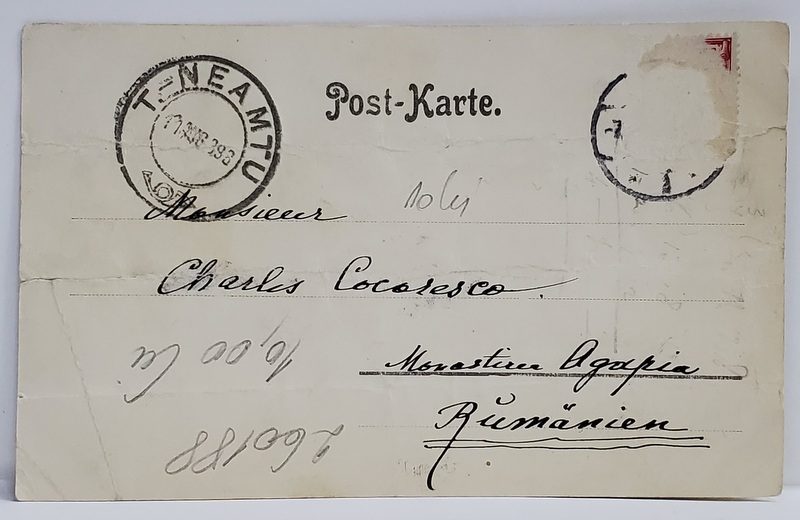 T.-NEAMTU
Post-Karte.
10 lei
Monsieur
Charles Cocoresco.
Monastirea Agapia
Rumänien
10,00 lei
260188